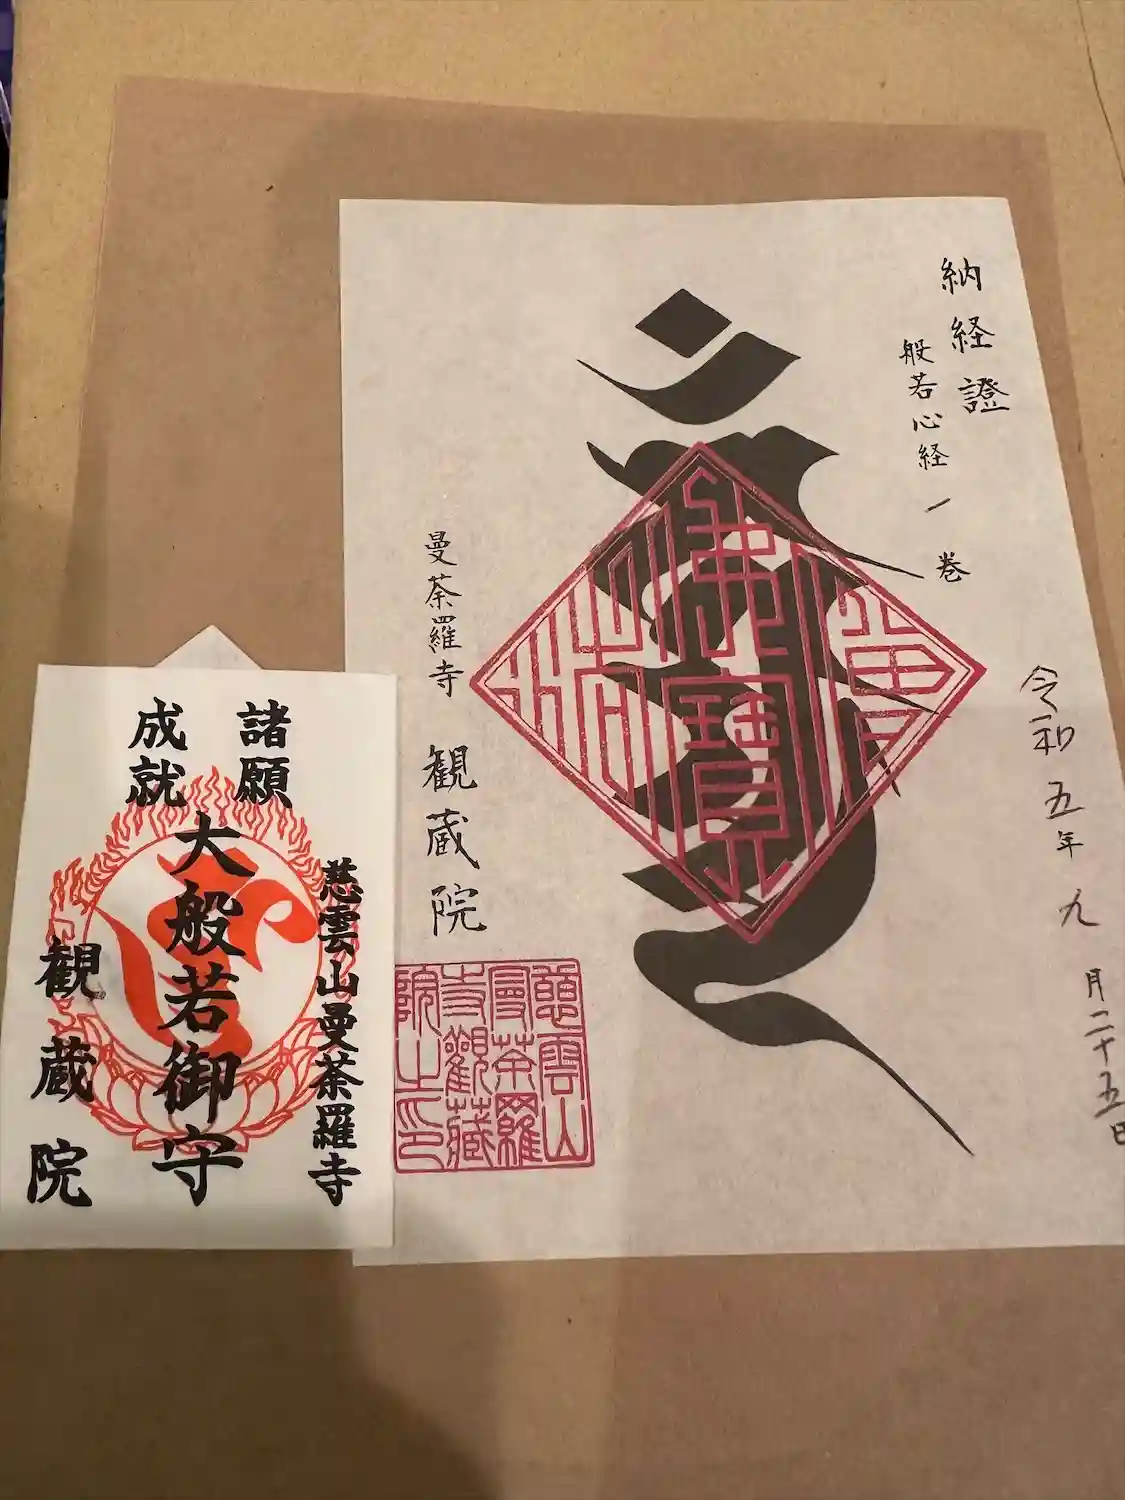 納経證
般若心経一巻
令和五年九月二十五日
佛法僧寶
曼荼羅寺 観蔵院
慈雲山
曼荼羅
寺觀藏
院之印
諸願
成就
慈雲山曼荼羅寺
大般若御守
観蔵院